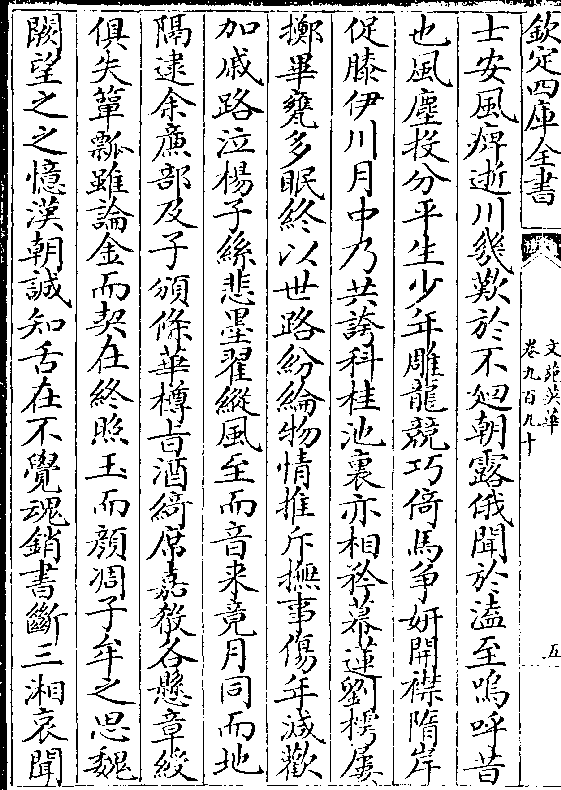 欽定四庫全書
文苑英華
卷九百九十
五
士安風痺逝川幾歎於不廻朝露俄聞於溘至嗚呼昔
也風塵投分平生少年雕龍競巧倚馬爭妍開襟隋岸
促膝伊川月中乃共誇科桂池裏亦相矜幕蓮劉楞屢
擲畢甕多眠終以世路紛綸物情推斥撫事傷年減歡
加戚路泣楊子絲悲墨翟縱風至而音来竟月同而地
隔逮余亷部及子頒條華樽旨酒綺席嘉殽各懸章綬
俱失簞瓢雖論金而契在終照玉而顔凋子牟之思魏
闕望之之憶漢朝誠知舌在不覺魂銷書斷三湘哀聞